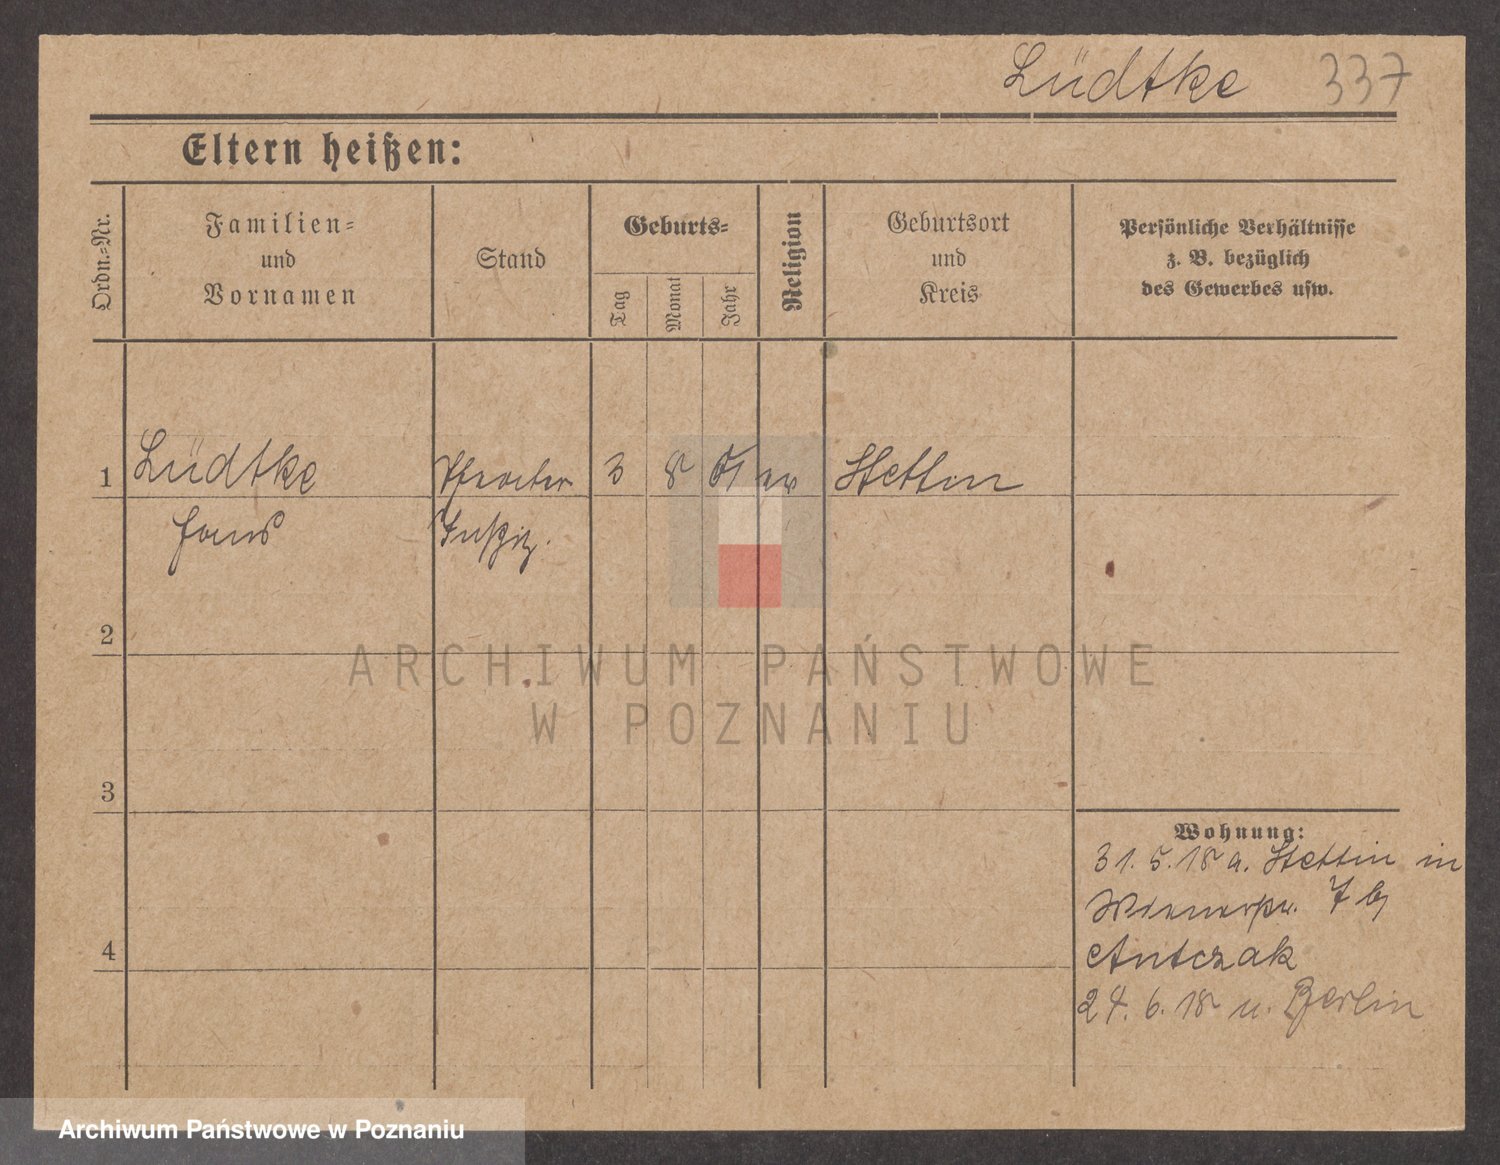 Lüdtke 337
Eltern heißen:
Ordn.=Nr.
Familien=
und
Vornamen
Stand
Geburts=
Tag
Monat
Jahr
Religion
Geburtsort
und
Kreis
Persönliche Verhältnisse
z. B. bezüglich
des Gewerbes usw.
1 Lüdtke 3 8 ev Stettin
Hans
2
3
4
Wohnung:
31. 5. 18 a. Stettin in
7 bj
Antczak
24. 6. 18 n. Berlin
ARCHIWUM PAŃSTWOWE
W POZNANIU
Archiwum Państwowe w Poznaniu